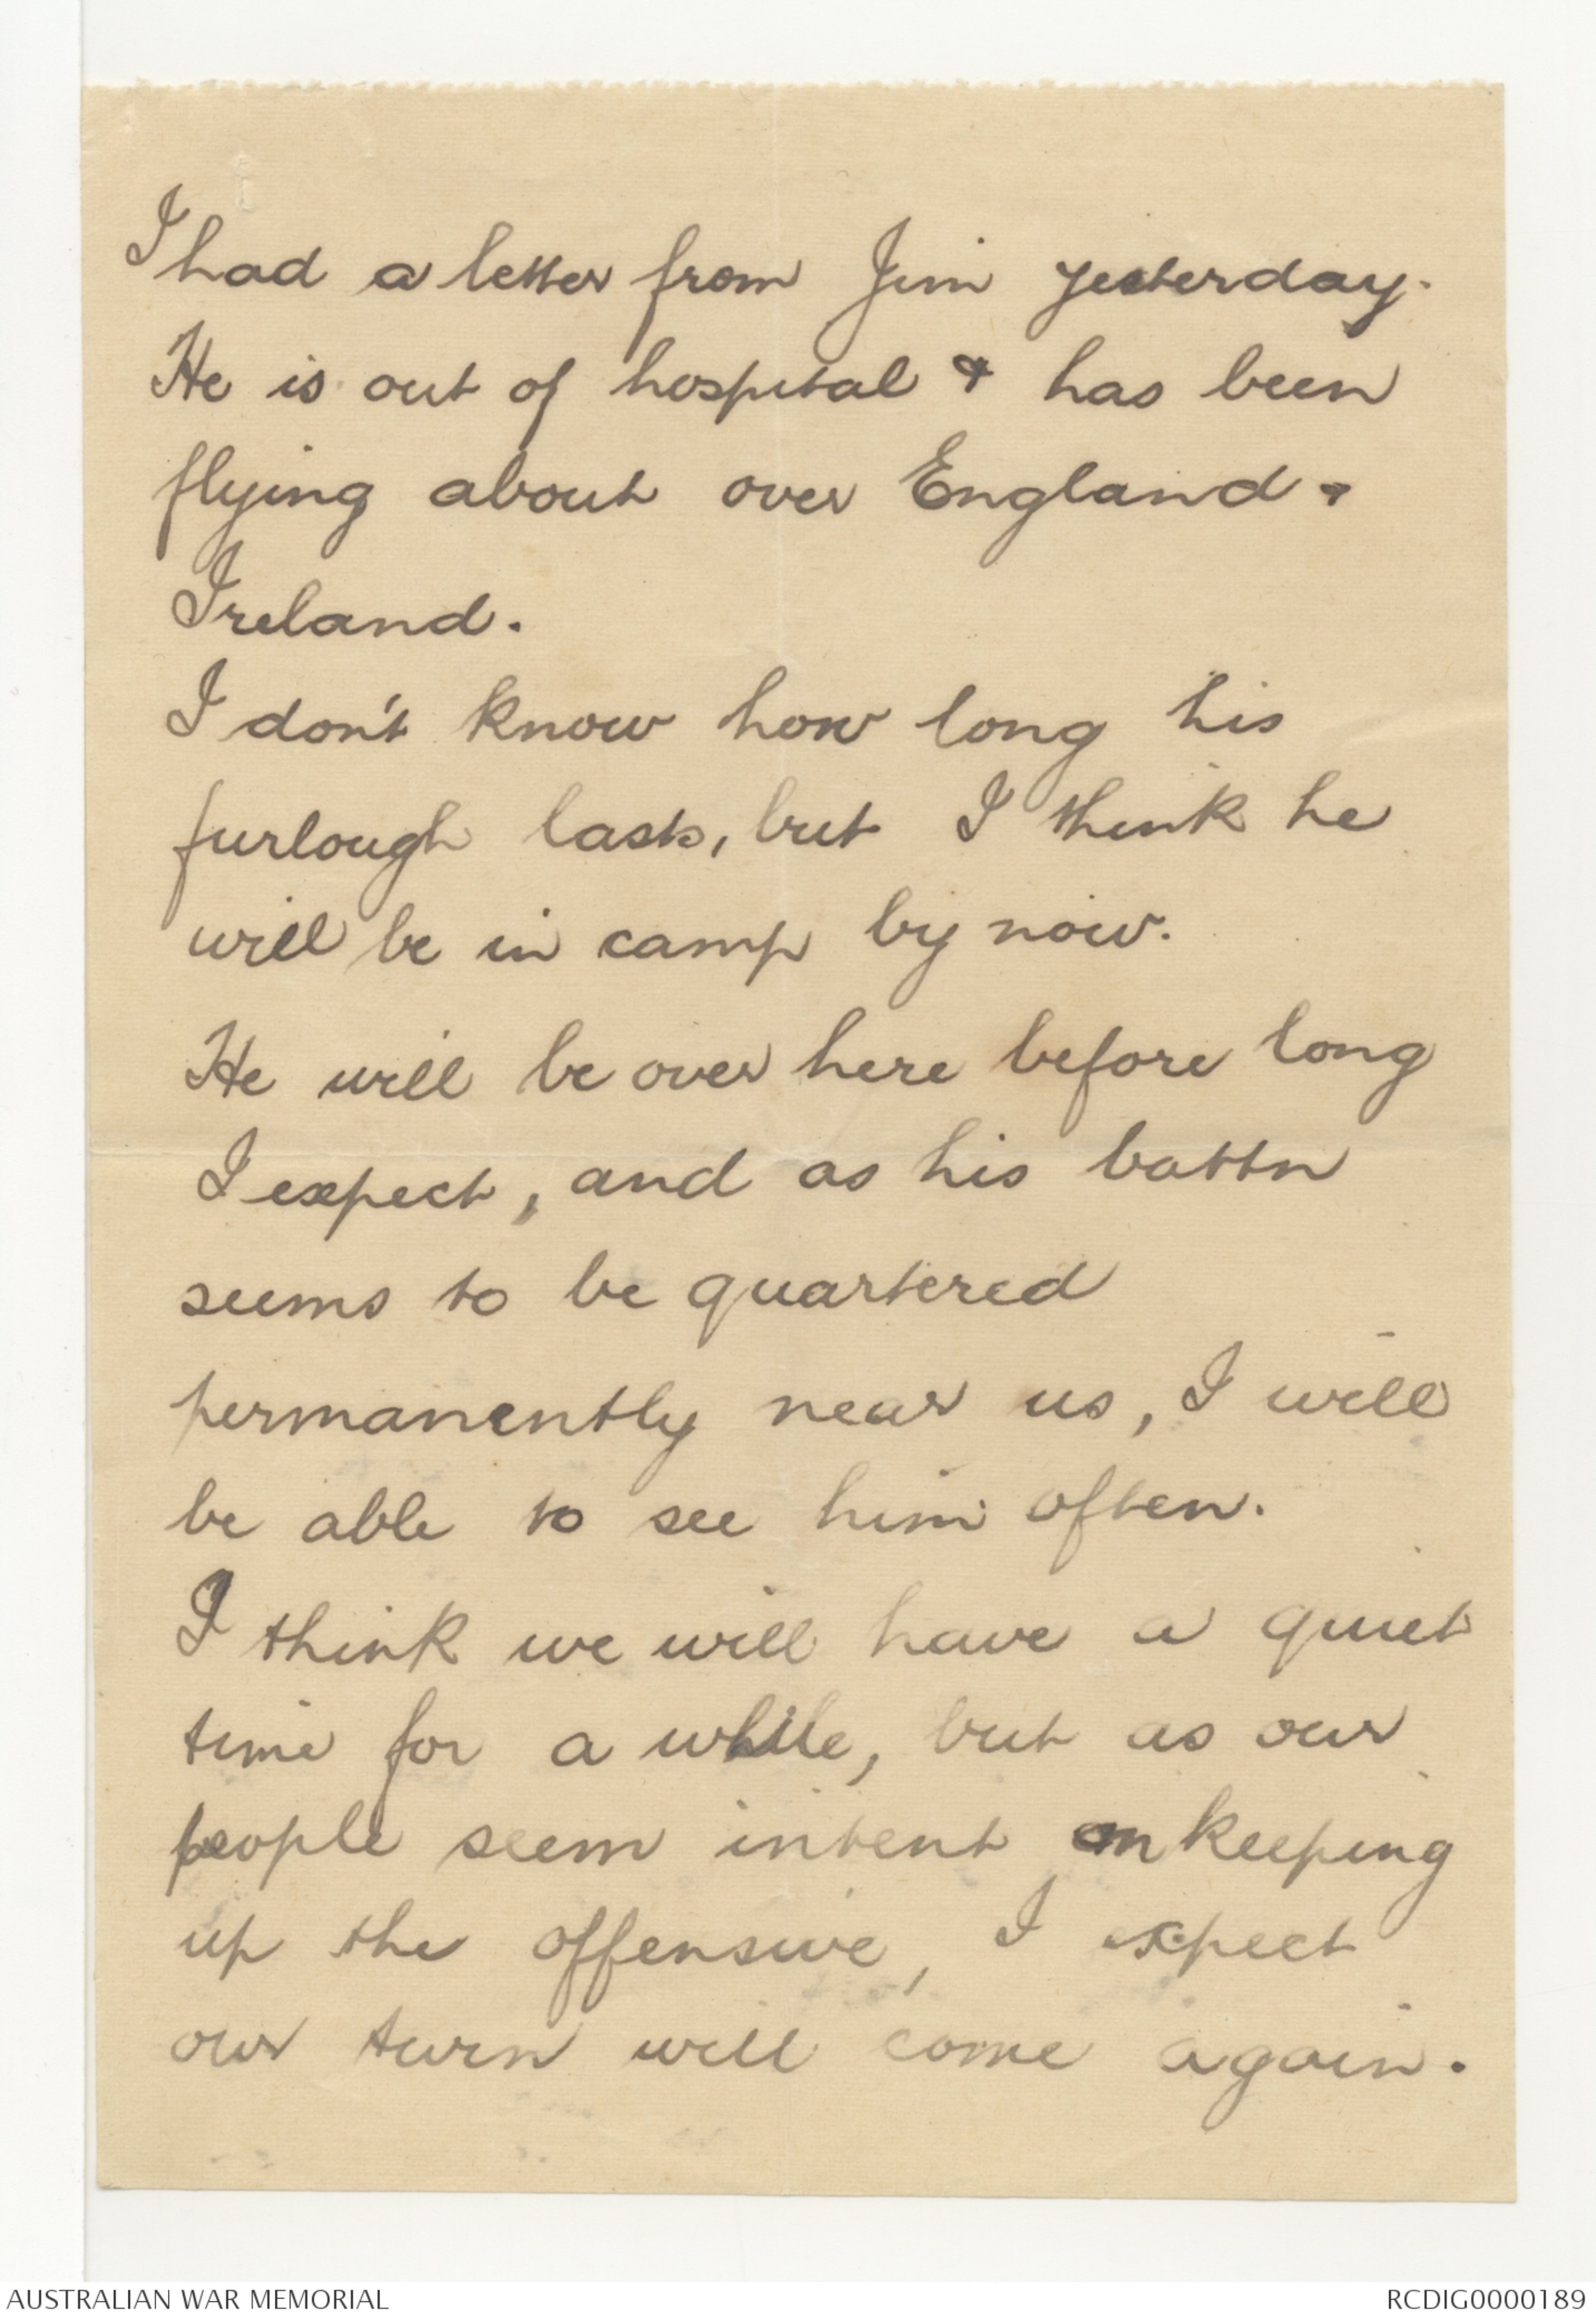 I had a letter from Jim yesterday.
He is out of hospital & has been
flying about over England &
Ireland.
I don't know how long his
furlough lasts, but I think he
will be in camp by now.
He will be over here before long
I expect, and as his battn
seems to be quartered
permanently near us, I will
be able to see him often.
I think we will have a quiet
time for a while, but as our
people seem intent on keeping
up the offensive, I expect
our turn will come again.
AUSTRALIAN WAR MEMORIAL
RCDIG0000189